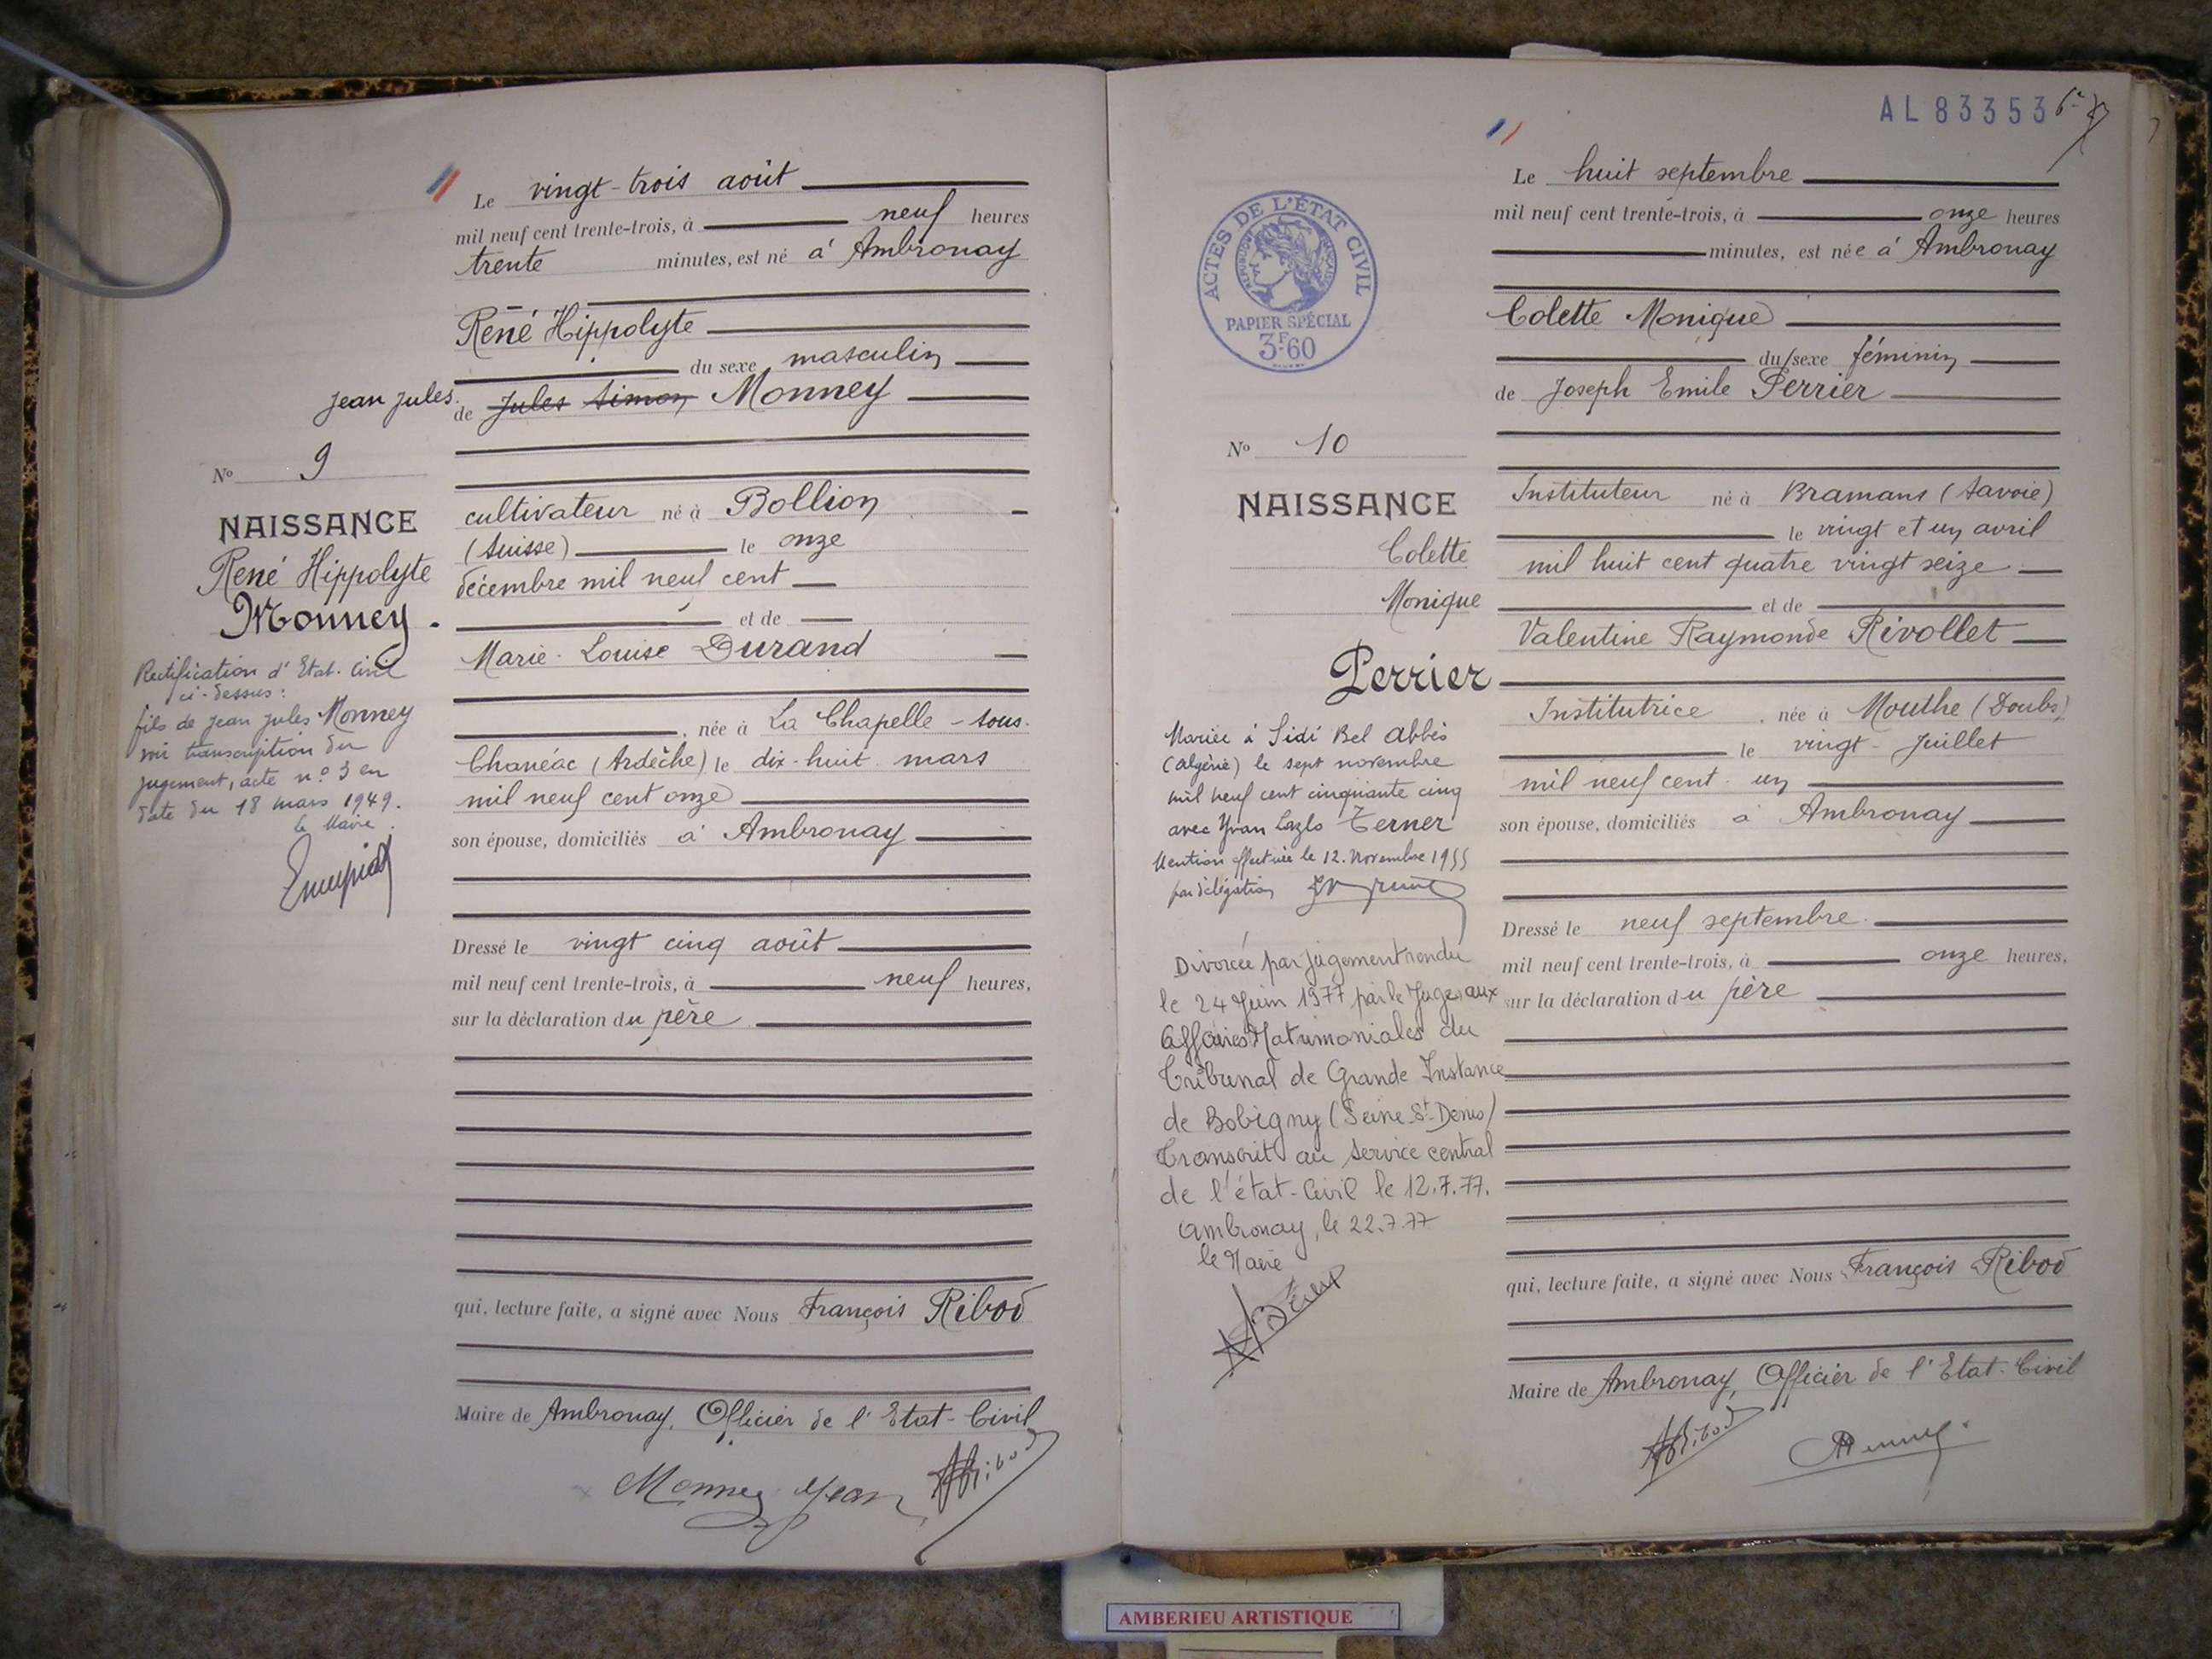 Le vingt-trois août
mil neuf cent trente-trois, à neuf heures
trente minutes, est né à Ambronay
René Hippolyte
du sexe masculin
Jean Jules.
de Jules Simon Monney
No 9
NAISSANCE
René Hippolyte
Monney.
Rectification d'Etat-civil
ci-dessus:
fils de Jean Jules Monney
voir transcription du
jugement, acte n° 3 en
date du 18 mars 1949.
le Maire.
cultivateur né à Bollion
(Suisse) le onze
décembre mil neuf cent
et de
Marie-Louise Durand
née à La Chapelle-sous-
Chanéac (Ardèche) le dix-huit mars
mil neuf cent onze
son épouse, domiciliés à Ambronay
Dressé le vingt cinq août
mil neuf cent trente-trois, à neuf heures,
sur la déclaration du père
qui, lecture faite, a signé avec Nous François Ribod
Maire de Ambronay, Officier de l'Etat-Civil
Monney Jean
ARibod
AL 83353
Le huit septembre
mil neuf cent trente-trois, à onze heures
minutes, est née à Ambronay
Colette Monique
du sexe féminin
de Joseph Emile Perrier
ACTES DE L'ÉTAT CIVIL
RÉPUBLIQUE FRANÇAISE
PAPIER SPÉCIAL
3F60
No 10
NAISSANCE
Colette
Monique
Perrier
Mariée à Sidi Bel Abbès
(Algérie) le sept novembre
mil neuf cent cinquante cinq
avec Yvan Lazlo Terner
Mention effectuée le 12. Novembre 1955
par délégation
Divorcée par jugement rendu
le 24 Juin 1977 par le Juge aux
Affaires Matrimoniales du
Tribunal de Grande Instance
de Bobigny (Seine-St-Denis)
Transcrit au Service central
de l'état-Civil le 12.7.77.
Ambronay, le 22.7.77
le Maire
Instituteur né à Bramans (Savoie)
le vingt et un avril
mil huit cent quatre vingt seize
et de
Valentine Raymonde Rivollet
Institutrice, née à Mouthe (Doubs)
le vingt-Juillet
mil neuf cent un
son épouse, domiciliés à Ambronay
Dressé le neuf septembre
mil neuf cent trente-trois, à onze heures,
sur la déclaration du père
qui, lecture faite, a signé avec Nous François Ribod
Maire de Ambronay, Officier de l'Etat-Civil
ARibod
AMBERIEU ARTISTIQUE